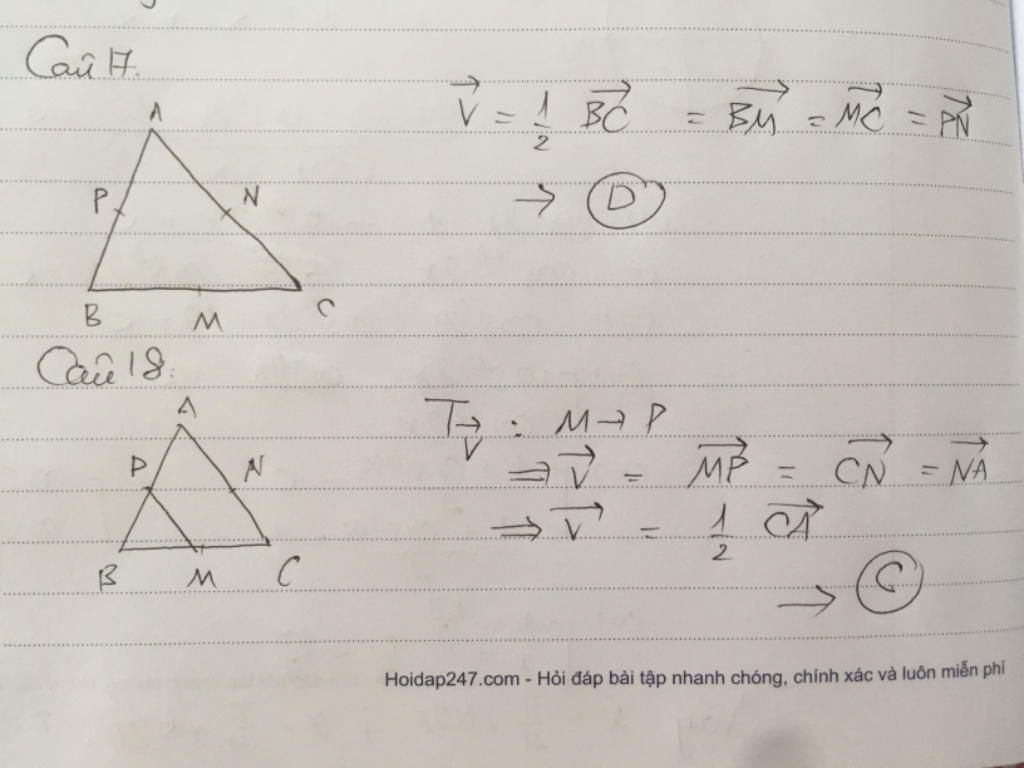 Câu 17.
A
P
N
B
M
C
V→ = 1/2 BC→ = BM→ = MC→ = PN→
→ D
Câu 18:
A
P
N
B
M
C
T_V→ : M → P
⇒ V→ = MP→ = CN→ = NA→
⇒ V→ = 1/2 CA→
→ C
Hoidap247.com - Hỏi đáp bài tập nhanh chóng, chính xác và luôn miễn phí